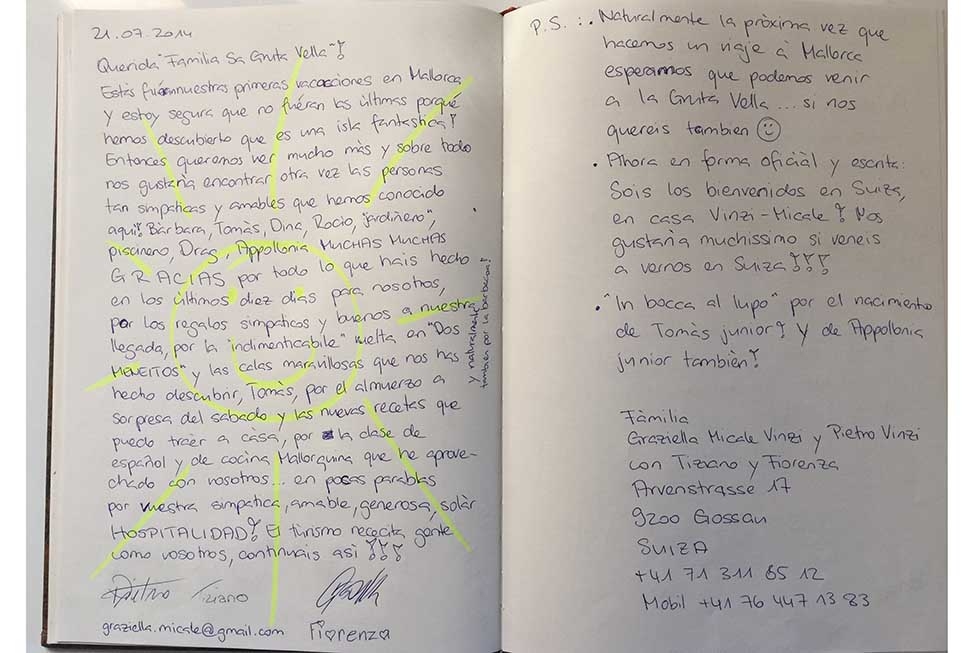 21.07.2014
Querida Familia Sa Gruta Vella~!
Estás fuéron nuestras primeras vacacciones en Mallorca
y estoy segura que no fuéran las últimas porqué
hemos descubierto que es una isla fantastica!
Entonces queremos ver mucho màs y sobre todo
nos gustaría encontrar otra vez las personas
tan simpaticas y amables que hemos conocido
aqui! Bàrbara, Tomàs, Dina, Rocio, "jardiñero",
piscinero, Drag, Appollonia MUCHAS MUCHAS
GRACIAS por todo lo que hais hecho
en los últimos diez dias para nosotros,
por los regalos simpaticos y buenos a nuestra
llegada, por la "indimenticabile" vuelta on "Dos
HENEITOS" y las calas maravillosas que nos has
hecho descubrir, Tomàs, por el almuerzo a
sorpresa del sabado y las nuevas recetas que
puedo traer a casa, por la clase de
español y de cocina Mallorquina que he aprove-
chado con vosotros... en pocas parablas
por vuestra simpatica, amable, generosa, solàr
HOSPITALIDAD! El turismo nececita gente
como vosotros, continuais asi !!!
y naturalmente
tambien por la barbacoa!
Pietro Tiziano
graziella.micale@gmail.com Fiorenza
P.S. :. Naturalmente la pròxima vez que
hacemos un viaje à Mallorca
esperamos que podemos venir
a la Gruta Vella ... si nos
quereis tambien ☺
• Ahora en forma oficiàl y escrita:
Sois los bienvenidos en Suiza,
en casa Vinzi-Micale! Nos
gustaría muchissimo si veneis
a vernos en Suiza!!!
• "In bocca al lupo" por el nacimiento
de Tomàs junior! Y de Appollonia
junior tambièn!
Fàmilia
Graziella Micale Vinzi y Pietro Vinzi
con Tiziano y Fiorenza
Arvenstrasse 17
9200 Gossau
SUIZA
+41 71 311 65 12
Mobil +41 76 447 13 83